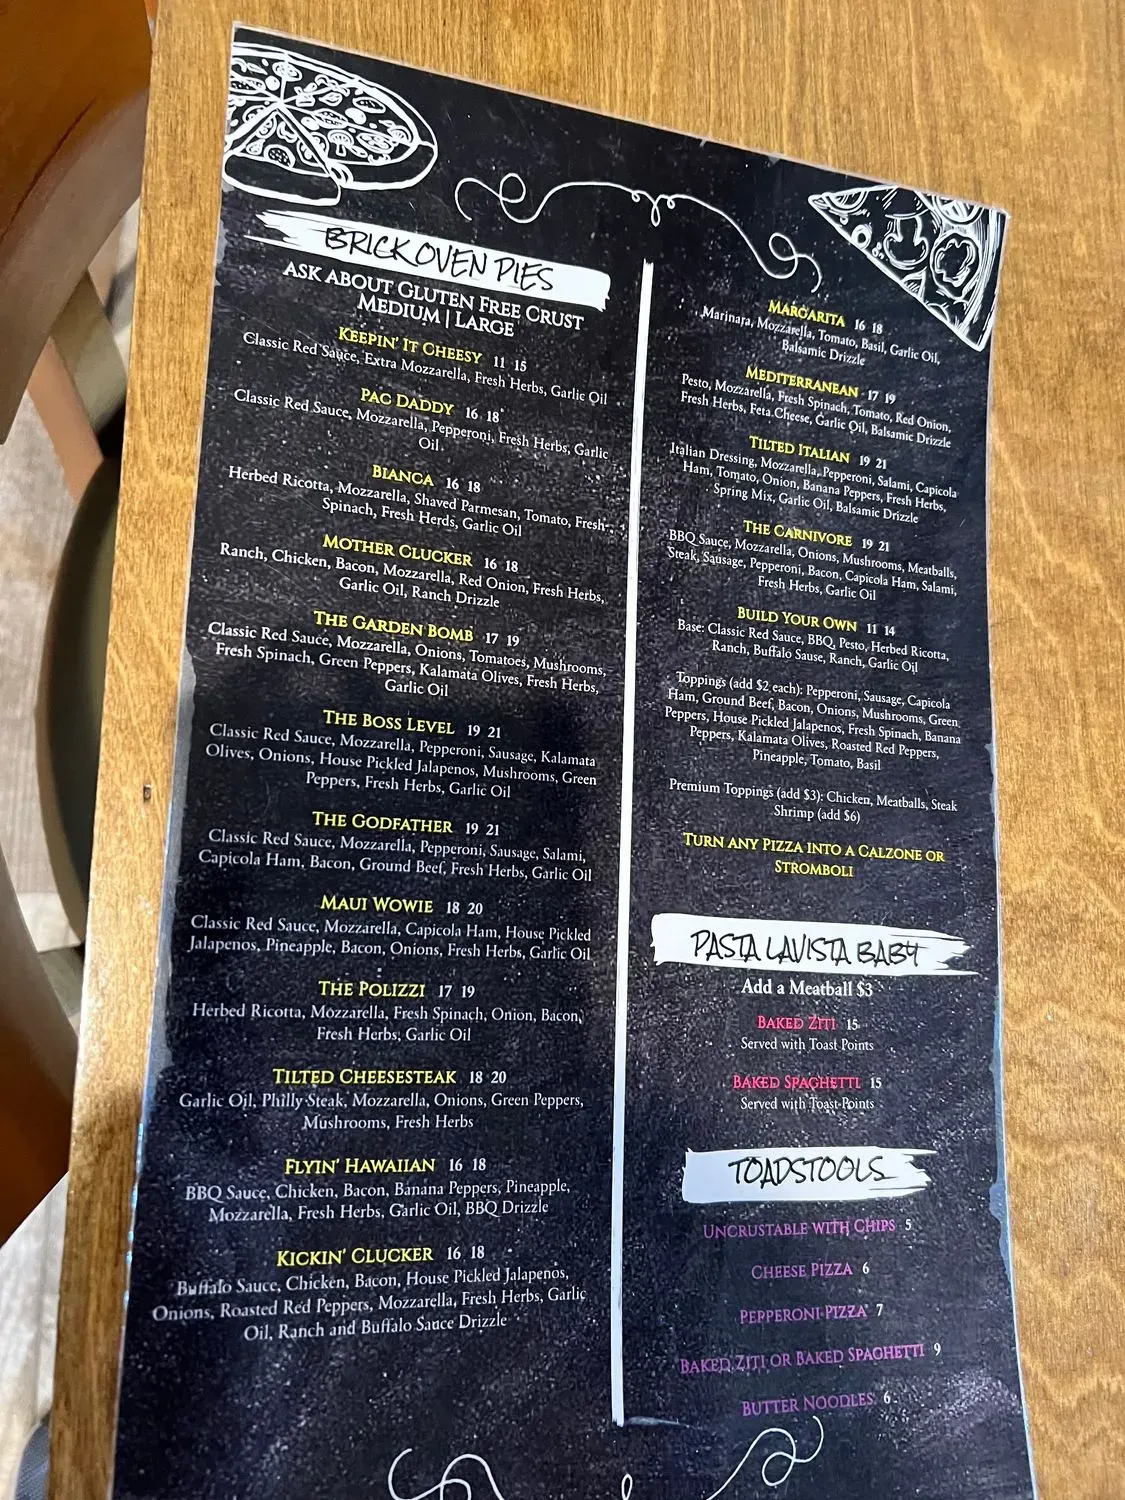 BRICK OVEN PIES
ASK ABOUT GLUTEN FREE CRUST
MEDIUM | LARGE
KEEPIN' IT CHEESY 11 15
Classic Red Sauce, Extra Mozzarella, Fresh Herbs, Garlic Oil
PAC DADDY 16 18
Classic Red Sauce, Mozzarella, Pepperoni, Fresh Herbs, Garlic
Oil
BIANCA 16 18
Herbed Ricotta, Mozzarella, Shaved Parmesan, Tomato, Fresh
Spinach, Fresh Herds, Garlic Oil
MOTHER CLUCKER 16 18
Ranch, Chicken, Bacon, Mozzarella, Red Onion, Fresh Herbs,
Garlic Oil, Ranch Drizzle
THE GARDEN BOMB 17 19
Classic Red Sauce, Mozzarella, Onions, Tomatoes, Mushrooms,
Fresh Spinach, Green Peppers, Kalamata Olives, Fresh Herbs,
Garlic Oil
THE BOSS LEVEL 19 21
Classic Red Sauce, Mozzarella, Pepperoni, Sausage, Kalamata
Olives, Onions, House Pickled Jalapenos, Mushrooms, Green
Peppers, Fresh Herbs, Garlic Oil
THE GODFATHER 19 21
Classic Red Sauce, Mozzarella, Pepperoni, Sausage, Salami,
Capicola Ham, Bacon, Ground Beef, Fresh Herbs, Garlic Oil
MAUI WOWIE 18 20
Classic Red Sauce, Mozzarella, Capicola Ham, House Pickled
Jalapenos, Pineapple, Bacon, Onions, Fresh Herbs, Garlic Oil
THE POLIZZI 17 19
Herbed Ricotta, Mozzarella, Fresh Spinach, Onion, Bacon,
Fresh Herbs, Garlic Oil
TILTED CHEESESTEAK 18 20
Garlic Oil, Philly Steak, Mozzarella, Onions, Green Peppers,
Mushrooms, Fresh Herbs
FLYIN' HAWAIIAN 16 18
BBQ Sauce, Chicken, Bacon, Banana Peppers, Pineapple,
Mozzarella, Fresh Herbs, Garlic Oil, BBQ Drizzle
KICKIN' CLUCKER 16 18
Buffalo Sauce, Chicken, Bacon, House Pickled Jalapenos,
Onions, Roasted Red Peppers, Mozzarella, Fresh Herbs, Garlic
Oil, Ranch and Buffalo Sauce Drizzle
MARGARITA 16 18
Marinara, Mozzarella, Tomato, Basil, Garlic Oil,
Balsamic Drizzle
MEDITERRANEAN 17 19
Pesto, Mozzarella, Fresh Spinach, Tomato, Red Onion,
Fresh Herbs, Feta Cheese, Garlic Oil, Balsamic Drizzle
TILTED ITALIAN 19 21
Italian Dressing, Mozzarella, Pepperoni, Salami, Capicola
Ham, Tomato, Onion, Banana Peppers, Fresh Herbs,
Spring Mix, Garlic Oil, Balsamic Drizzle
THE CARNIVORE 19 21
BBQ Sauce, Mozzarella, Onions, Mushrooms, Meatballs,
Steak, Sausage, Pepperoni, Bacon, Capicola Ham, Salami,
Fresh Herbs, Garlic Oil
BUILD YOUR OWN 11 14
Base: Classic Red Sauce, BBQ, Pesto, Herbed Ricotta,
Ranch, Buffalo Sause, Ranch, Garlic Oil
Toppings (add $2 each): Pepperoni, Sausage, Capicola
Ham, Ground Beef, Bacon, Onions, Mushrooms, Green
Peppers, House Pickled Jalapenos, Fresh Spinach, Banana
Peppers, Kalamata Olives, Roasted Red Peppers,
Pineapple, Tomato, Basil
Premium Toppings (add $3): Chicken, Meatballs, Steak
Shrimp (add $6)
TURN ANY PIZZA INTO A CALZONE OR
STROMBOLI
PASTA LAVISTA BABY
Add a Meatball $3
BAKED ZITI 15
Served with Toast Points
BAKED SPAGHETTI 15
Served with Toast Points
TOADSTOOLS
UNCRUSTABLE WITH CHIPS 5
CHEESE PIZZA 6
PEPPERONI PIZZA 7
BAKED ZITI OR BAKED SPAGHETTI 9
BUTTER NOODLES 6